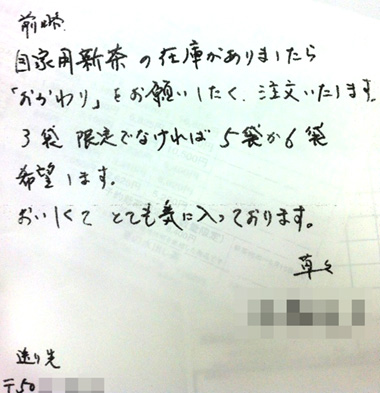 前略
自家用新茶の在庫がありましたら
「おかわり」をお願いしたく、注文いたします。
3袋 限定でなければ 5袋か6袋
希望します。
おいしくて とても気に入っております。
草々
送り先
〒50